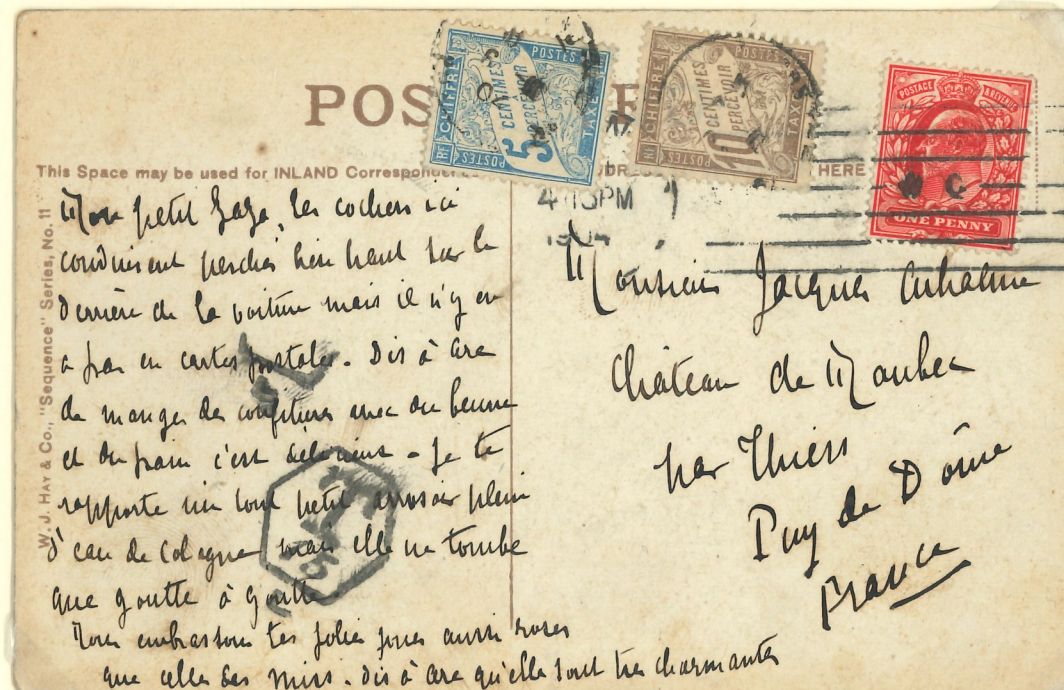 POS
This Space may be used for INLAND Correspondence
HERE
W. J. HAY & Co., "Sequence" Series, No. 11
CHIFFRE
POSTES
TAXE
RF
POSTES
5 CENTIMES
À PERCEVOIR
CHIFFRE
POSTES
TAXE
POSTES
10 CENTIMES
À PERCEVOIR
POSTAGE & REVENUE
ONE PENNY
4 15PM
1904
Mon petit les cochers ici
conduisent perchés bien haut sur le
derrière de la voiture mais il n'y en
a pas en cartes postales. Dis à
de manger des confitures avec du beurre
et du pain c'est délicieux. Je te
rapporte un tout petit arrosoir plein
d'eau de Cologne mais elle ne tombe
que goutte à goutte
Nous embrassons tes jolies joues aussi roses
que celles des Miss. dis à qu'elles sont très charmantes
T
15
C
Monsieur Jacques
Château de
par Thiers
Puy de Dôme
France